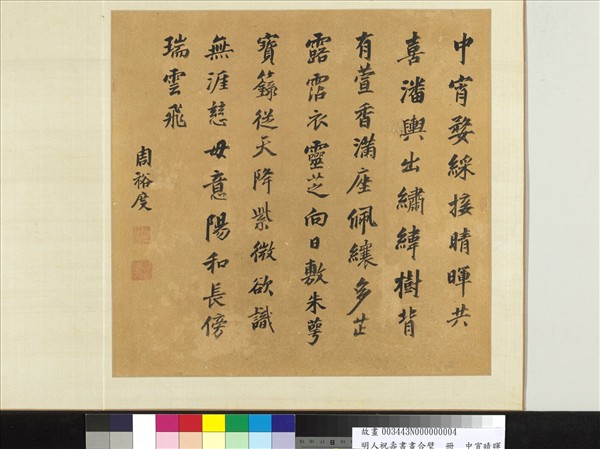 中宵婺綵接晴暉共
喜潘輿出繡幃樹背
有萱香滿座佩纕多芷
露霑衣靈芝向日敷朱萼
寶籙從天降紫微欲識
無涯慈母意陽和長傍
瑞雲飛
周裕度
故畫 003443N000000004
明人祝壽書畫合璧 冊 中宵晴暉